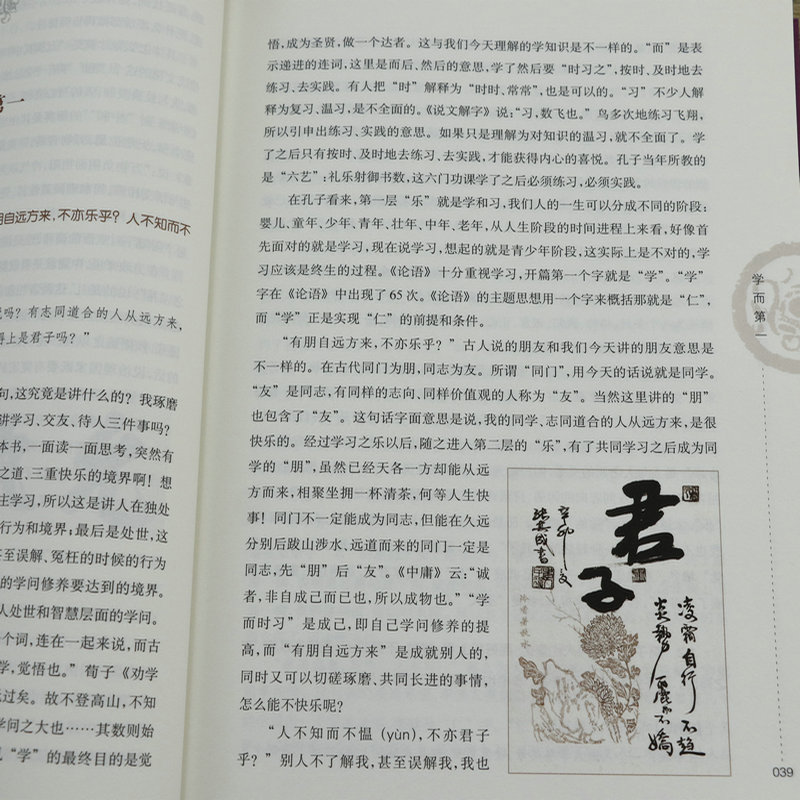 第一
朋自远方来，不亦乐乎？人不知而不
吗？有志同道合的人从远方来，
得上是君子吗？”
句，这究竟是讲什么的？我琢磨
讲学习、交友、待人三件事吗？
本书，一面读一面思考，突然有
之道、三重快乐的境界啊！想
主学习，所以这是讲人在独处
行为和境界；最后是处世，这
甚至误解、冤枉的时候的行为
的学问修养要达到的境界。
人处世和智慧层面的学问。
个词，连在一起来说，而古
学，觉悟也。”荀子《劝学
过矣。故不登高山，不知
学问之大也……其数则始
“学”的最终目的是觉
悟，成为圣贤，做一个达者。这与我们今天理解的学知识是不一样的。“而”是表
示递进的连词，这里是而后、然后的意思，学了然后要“时习之”，按时、及时地去
练习、去实践。有人把“时”解释为“时时、常常”，也是可以的。“习”不少人解
释为复习、温习，是不全面的。《说文解字》说：“习，数飞也。”鸟多次地练习飞翔，
所以引申出练习、实践的意思。如果只是理解为对知识的温习，就不全面了。学
了之后只有按时、及时地去练习、去实践，才能获得内心的喜悦。孔子当年所教的
是“六艺”：礼乐射御书数，这六门功课学了之后必须练习，必须实践。
在孔子看来，第一层“乐”就是学和习，我们人的一生可以分成不同的阶段：
婴儿、童年、少年、青年、壮年、中年、老年，从人生阶段的时间进程上来看，好像首
先面对的就是学习，现在说学习，想起的就是青少年阶段，这实际上是不对的，学
习应该是终生的过程。《论语》十分重视学习，开篇第一个字就是“学”。“学”
字在《论语》中出现了65次。《论语》的主题思想用一个字来概括那就是“仁”，
而“学”正是实现“仁”的前提和条件。
“有朋自远方来，不亦乐乎？”古人说的朋友和我们今天讲的朋友意思是
不一样的。在古代同门为朋，同志为友。所谓“同门”，用今天的话说就是同学。
“友”是同志，有同样的志向、同样价值观的人称为“友”。当然这里讲的“朋”
也包含了“友”。这句话字面意思是说，我的同学、志同道合的人从远方来，是很
快乐的。经过学习之乐以后，随之进入第二层的“乐”，有了共同学习之后成为同
学的“朋”，虽然已经天各一方却能从远
方而来，相聚坐拥一杯清茶，何等人生快
事！同门不一定能成为同志，但能在久远
分别后跋山涉水、远道而来的同门一定是
同志，先“朋”后“友”。《中庸》云：“诚
者，非自成己而已也，所以成物也。”“学
而时习”是成己，即自己学问修养的提
高，而“有朋自远方来”是成就别人的，
同时又可以切磋琢磨、共同长进的事情，
怎么能不快乐呢？
“人不知而不愠（yùn），不亦君子
乎？”别人不了解我，甚至误解我，我也
君子
凌霜自行
不趋
炎势
不骄
辛卯
张其成书
学而第一
039